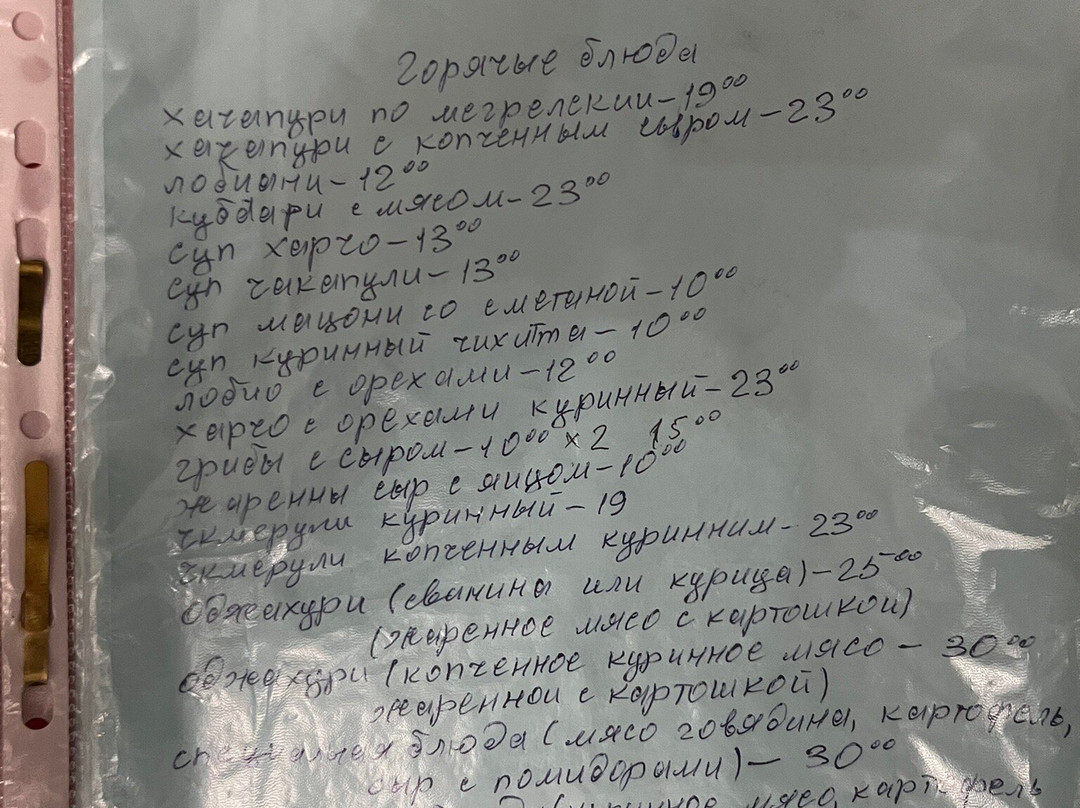 Горячые блюда
хачапури по мегрелскии-19⁰⁰
хачапури с копченным сыром-23⁰⁰
лобиани-12⁰⁰
кубдари с мясом-23⁰⁰
суп харчо-13⁰⁰
суп чакапули-13⁰⁰
суп мацони со сметаной-10⁰⁰
суп куринный чихитма-10⁰⁰
лобио с орехами-12⁰⁰
харчо с орехами куринный-23⁰⁰
грибы с сыром-10⁰⁰ x2 15⁰⁰
жаренны сыр с яицом-10⁰⁰
чкмерули куринный-19
чкмерули копченным куринним-23⁰⁰
оджахури (свинина или курица)-25⁰⁰
(жаренное мясо с картошкой)
оджахури (копченное куринное мясо - 30⁰⁰
жаренной с картошкой)
блюда (мясо говядина, картофель,
сыр с помидорами) - 30⁰⁰
мясо, картофель